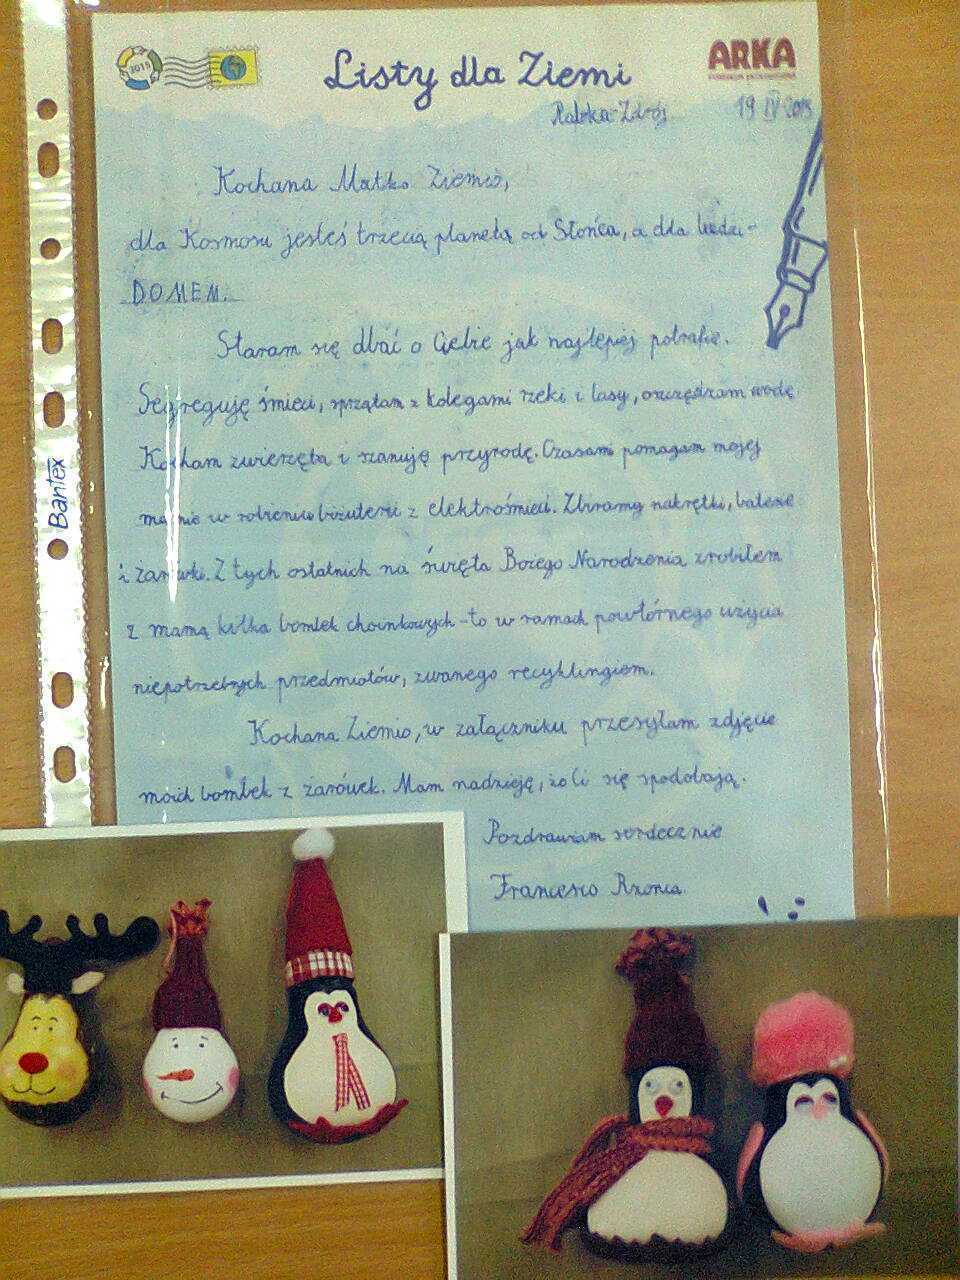 2015
Listy dla Ziemi
ARKA
Rabka-Zdrój 19 IV 2015
Kochana Matko Ziemio,
dla Kosmosu jesteś trzecią planetą od Słońca, a dla ludzi-
DOMEM.
Staram się dbać o Ciebie jak najlepiej potrafię.
Segreguję śmieci, sprzątam z kolegami rzeki i lasy, oszczędzam wodę.
Kocham zwierzęta i szanuję przyrodę. Czasami pomagam mojej
mamie w robieniu biżuterii z elektrośmieci. Zbieramy nakrętki, baterie
i żarówki. Z tych ostatnich na święta Bożego Narodzenia zrobiłem
z mamą kilka bombek choinkowych - to w ramach powtórnego użycia
niepotrzebnych przedmiotów, zwanego recyklingiem.
Kochana Ziemio, w załączniku przesyłam zdjęcie
moich bombek z żarówek. Mam nadzieję, że Ci się spodobają.
Pozdrawiam serdecznie
Francesco
Bantex